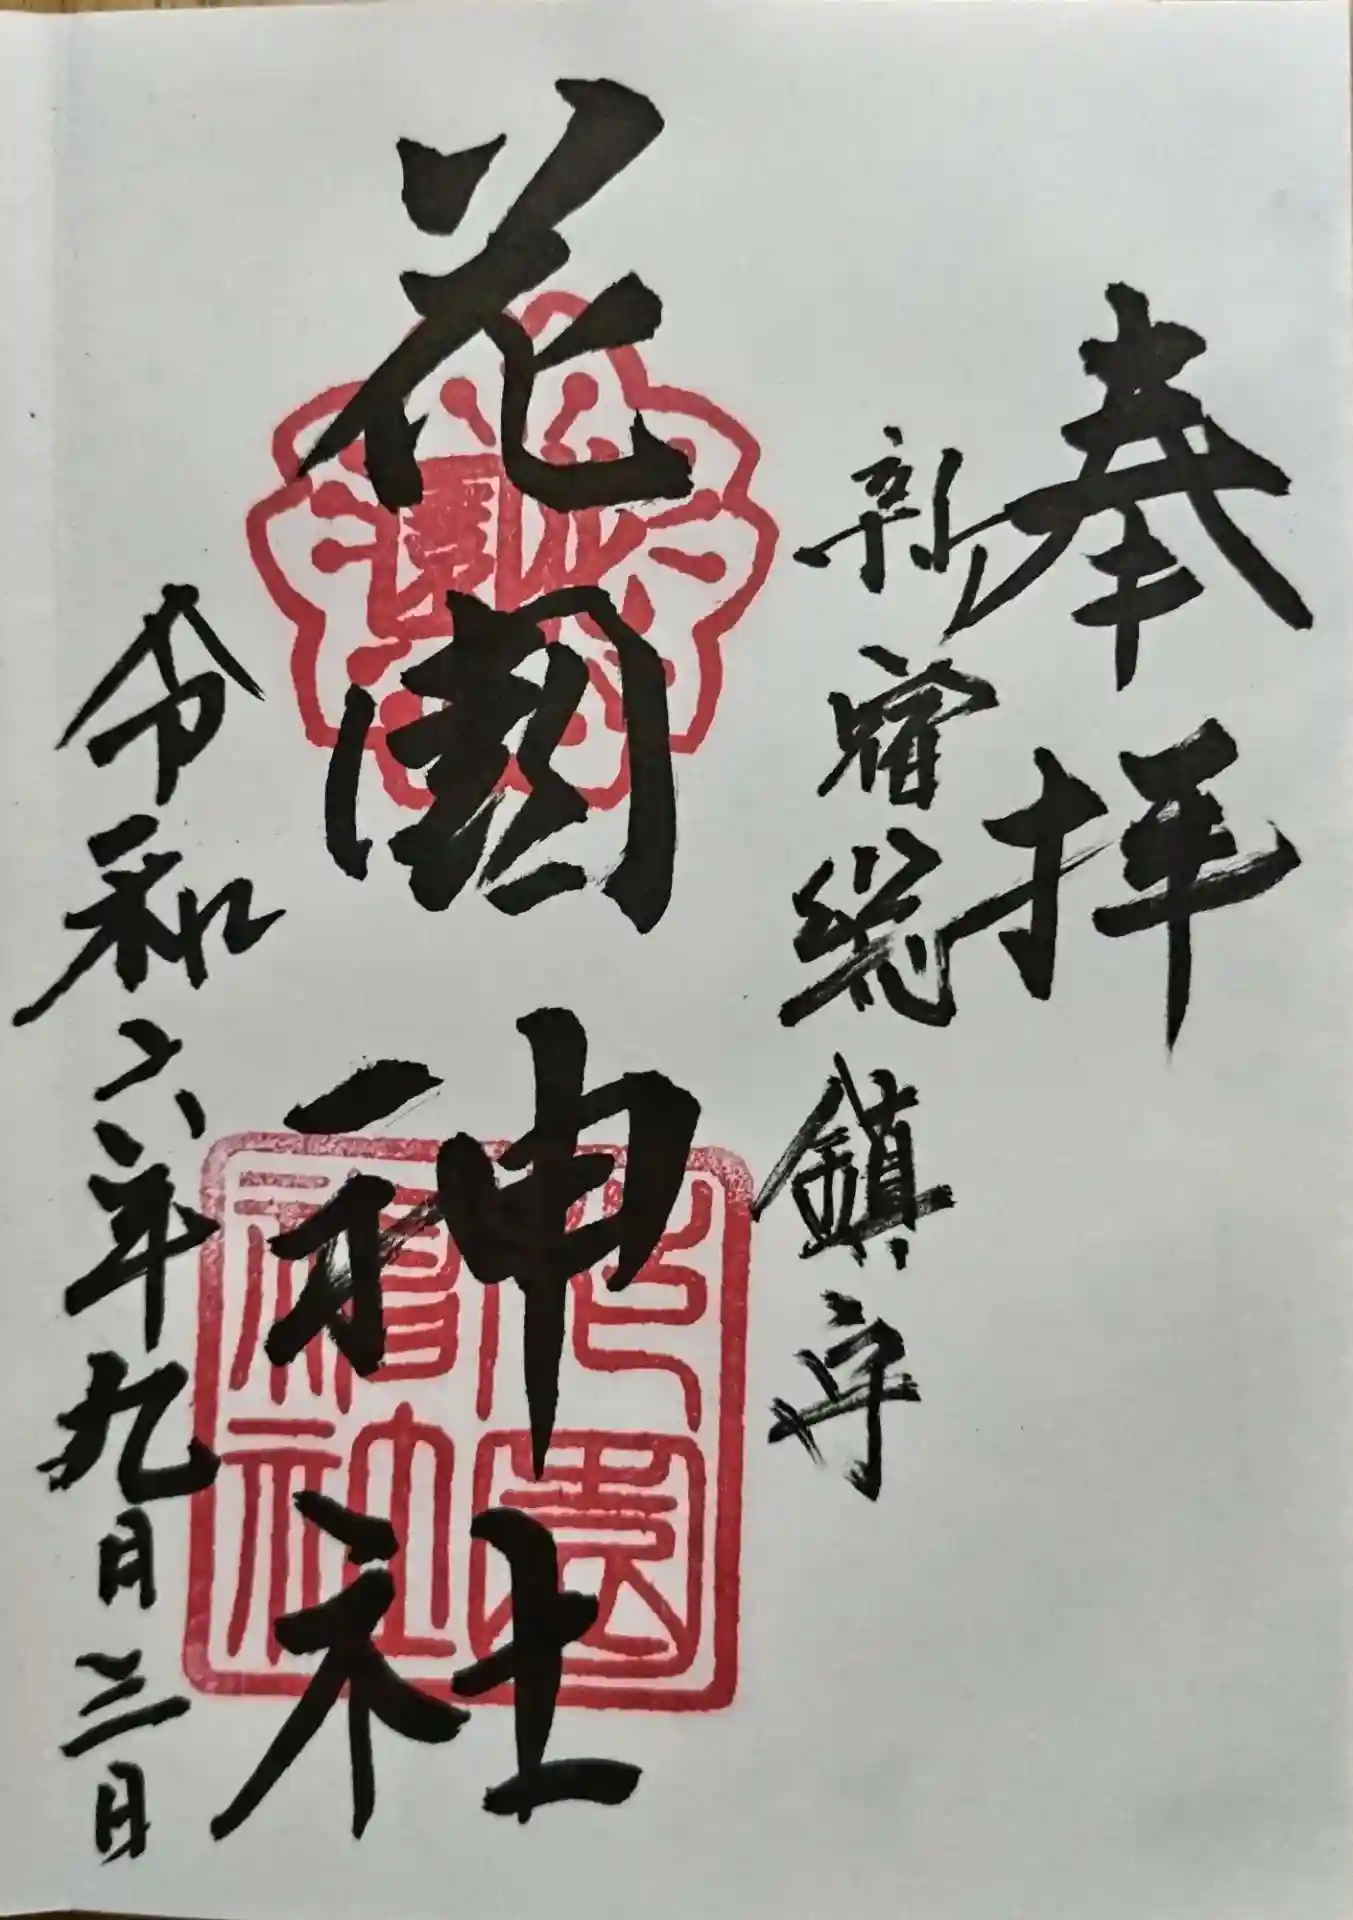 奉拝
新宿総鎮守
花園神社
花園神社
令和六年九月三日